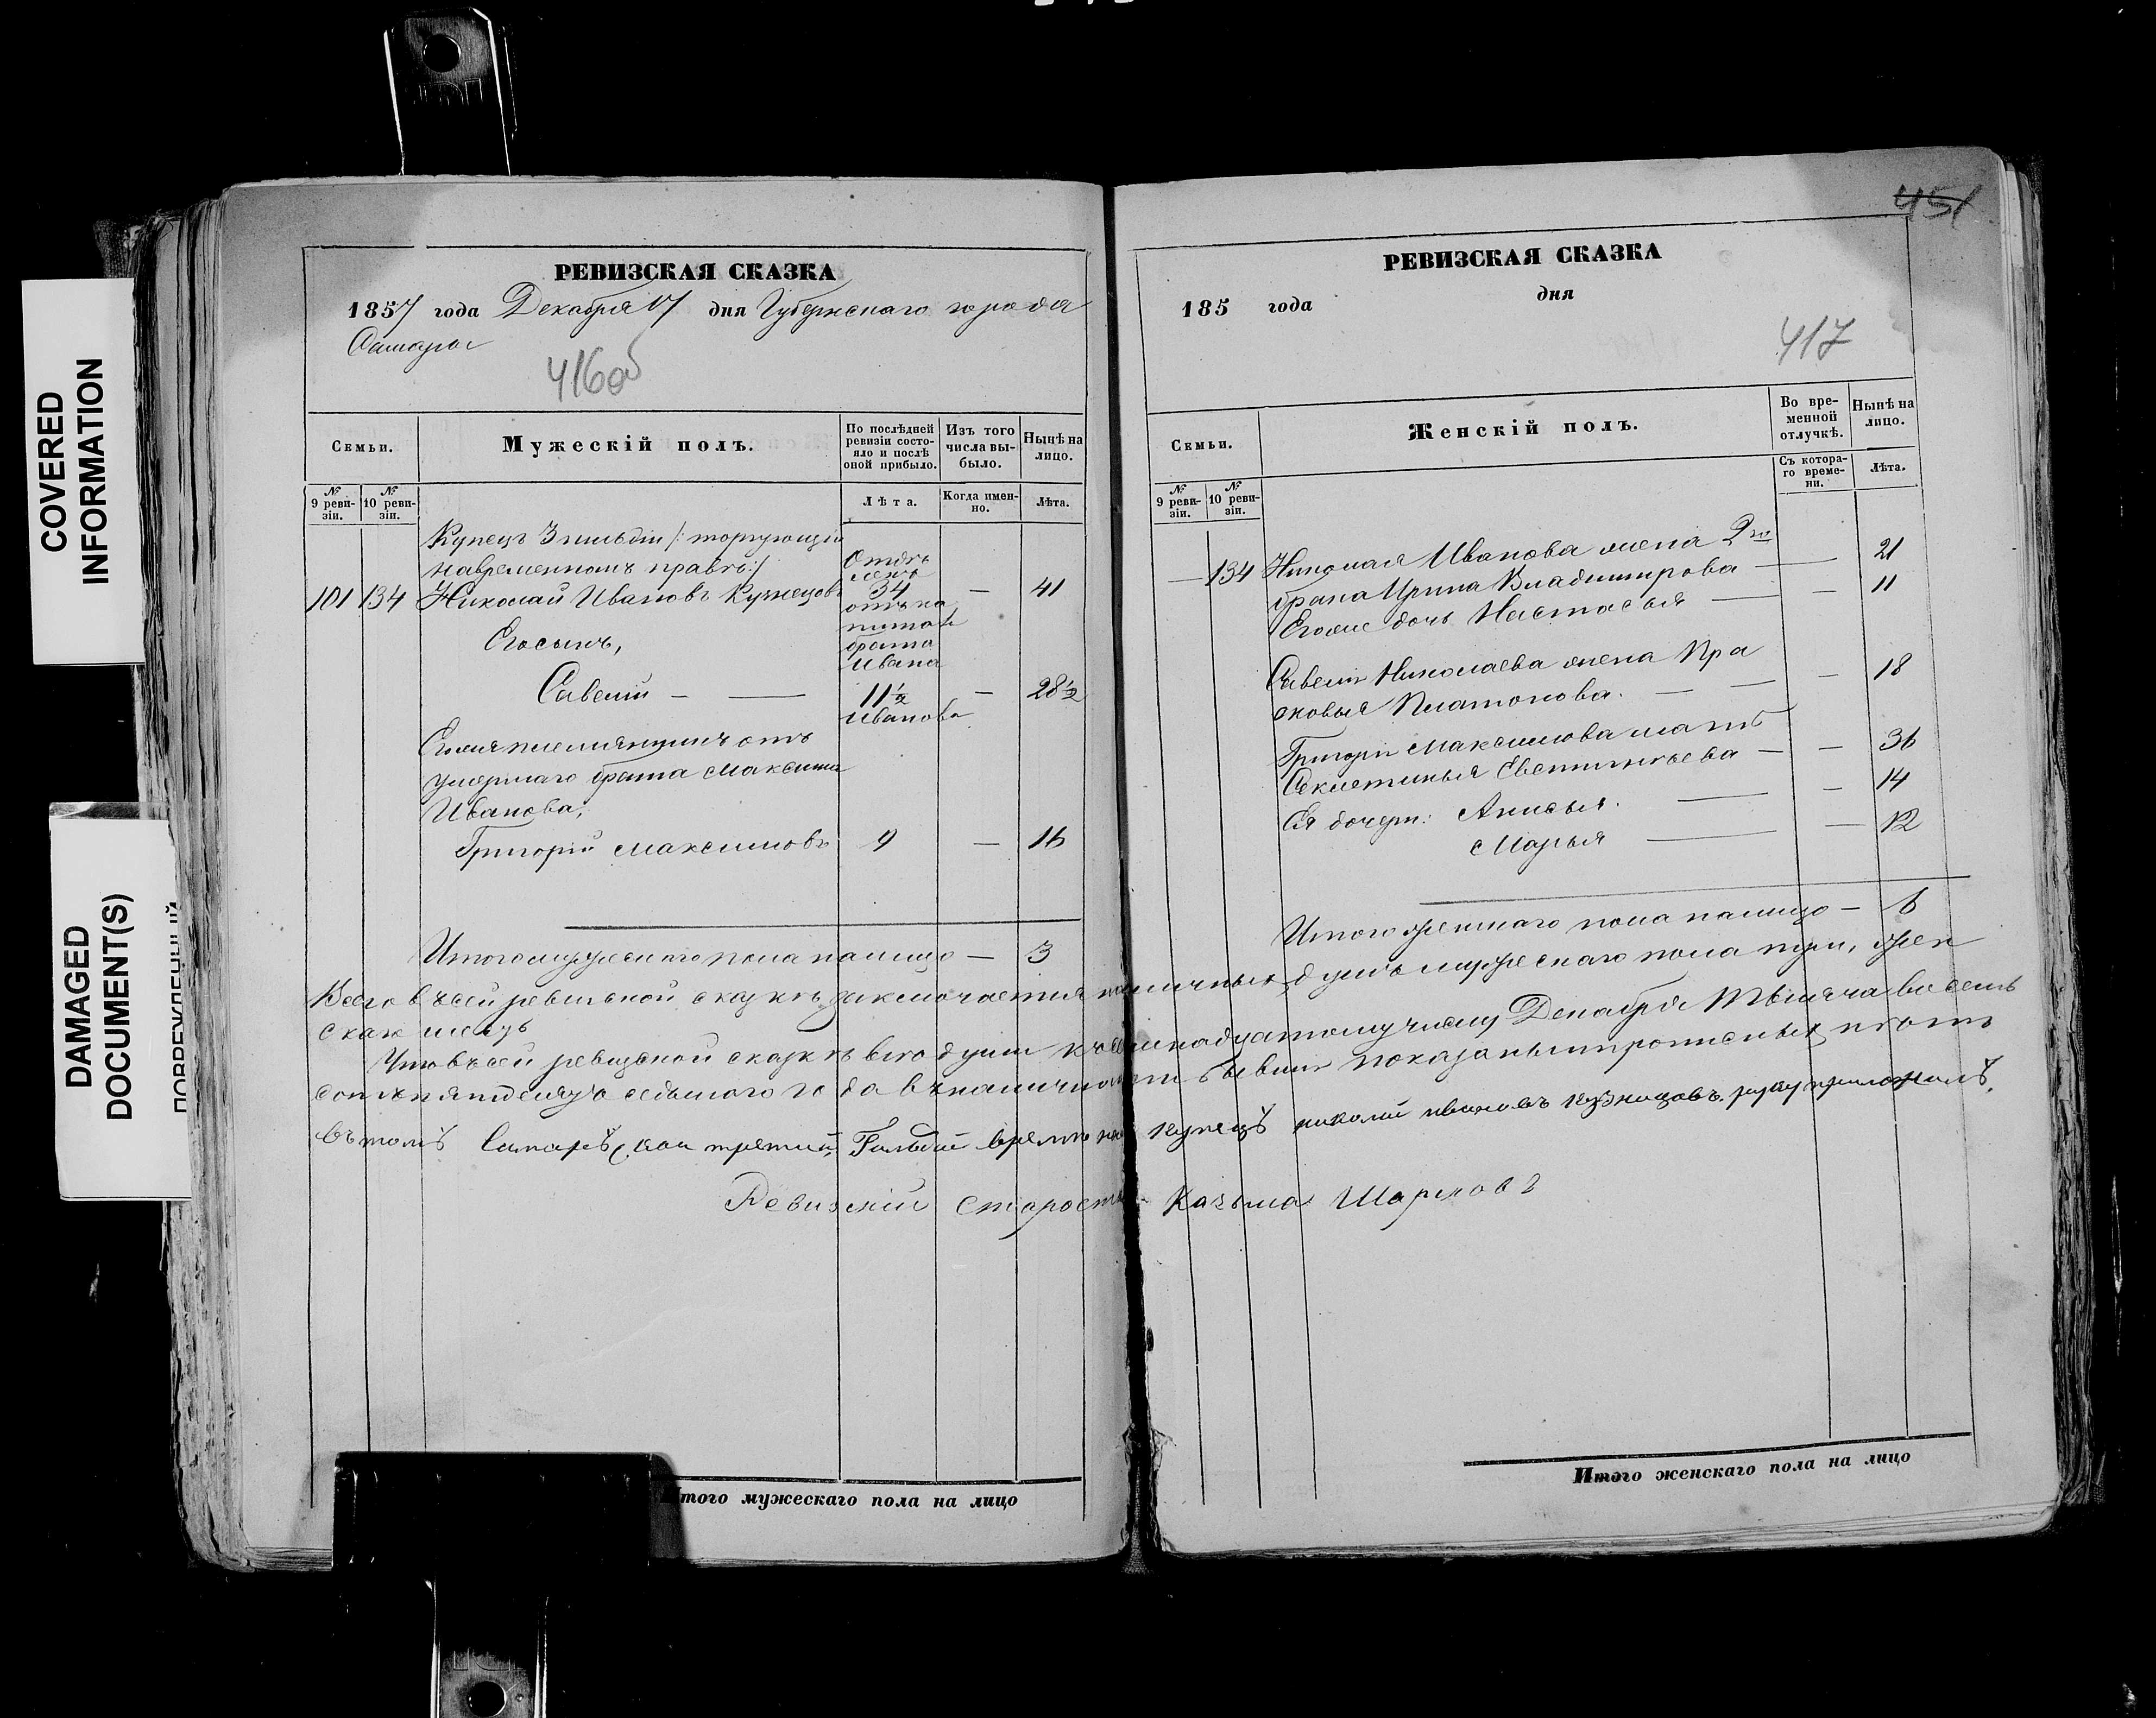 COVERED
INFORMATION
DAMAGED
DOCUMENT(S)
ПОВРЕЖДЕННЫЙ
РЕВИЗСКАЯ СКАЗКА
1857 года Декабря 17 дня Губернскаго города
Самары
416об
Семьи.
Мужескій полъ.
По послѣдней ревизіи состояло и послѣ оной прибыло.
Изъ того числа выбыло.
Нынѣ на лицо.
№ 9 ревизіи.
№ 10 ревизіи.
Лѣта.
Когда именно.
Лѣта.
Купецъ 3 гильдіи /: торгующій
на временномъ правѣ :/
101 134 Николай Ивановъ Кузнецовъ 34 — 41
Отдѣленъ
отъ капитала
брата
Ивана
Иванова
Его сынъ,
Савелій — — 11½ — 28½
Егоже племянникъ отъ
умершаго брата Максима
Иванова,
Григорій Максимовъ 9 — 16
Итого мужескаго пола налицо — 3
РЕВИЗСКАЯ СКАЗКА
185 года дня
451
417
Семьи.
Женскій полъ.
Во временной отлучкѣ.
Нынѣ на лицо.
№ 9 ревизіи.
№ 10 ревизіи.
Съ котораго времени.
Лѣта.
— 134 Николая Иванова жена 2го
брака Ирина Владимирова — — 21
Егоже дочь Настасья — — 11
Савелія Николаева жена Пра
сковья Платонова. — — — 18
Григорія Максимова мать
Секлетинья Светинтьева — — 36
Ея дочери: Анисья. — — 14
Марья — — 12
Итого женскаго пола налицо — 6
Всего въ сей ревизской сказкѣ заключается наличныхъ душъ мужескаго пола три, жен
скаго шесть
Что въ сей ревизской сказкѣ всѣ души къ семнадцатому числу Декабря Тысяча восемь
сотъ пятьдесятъ седьмого года въ наличности бывшія показаны и прописныхъ нѣтъ
въ томъ Самарѣ, кои третий Гильдий времѣнно купецъ николай ивановъ кузнецовъ руку приложилъ.
Ревизскій староста Казьма Шарковъ
Итого мужескаго пола на лицо
Итого женскаго пола на лицо